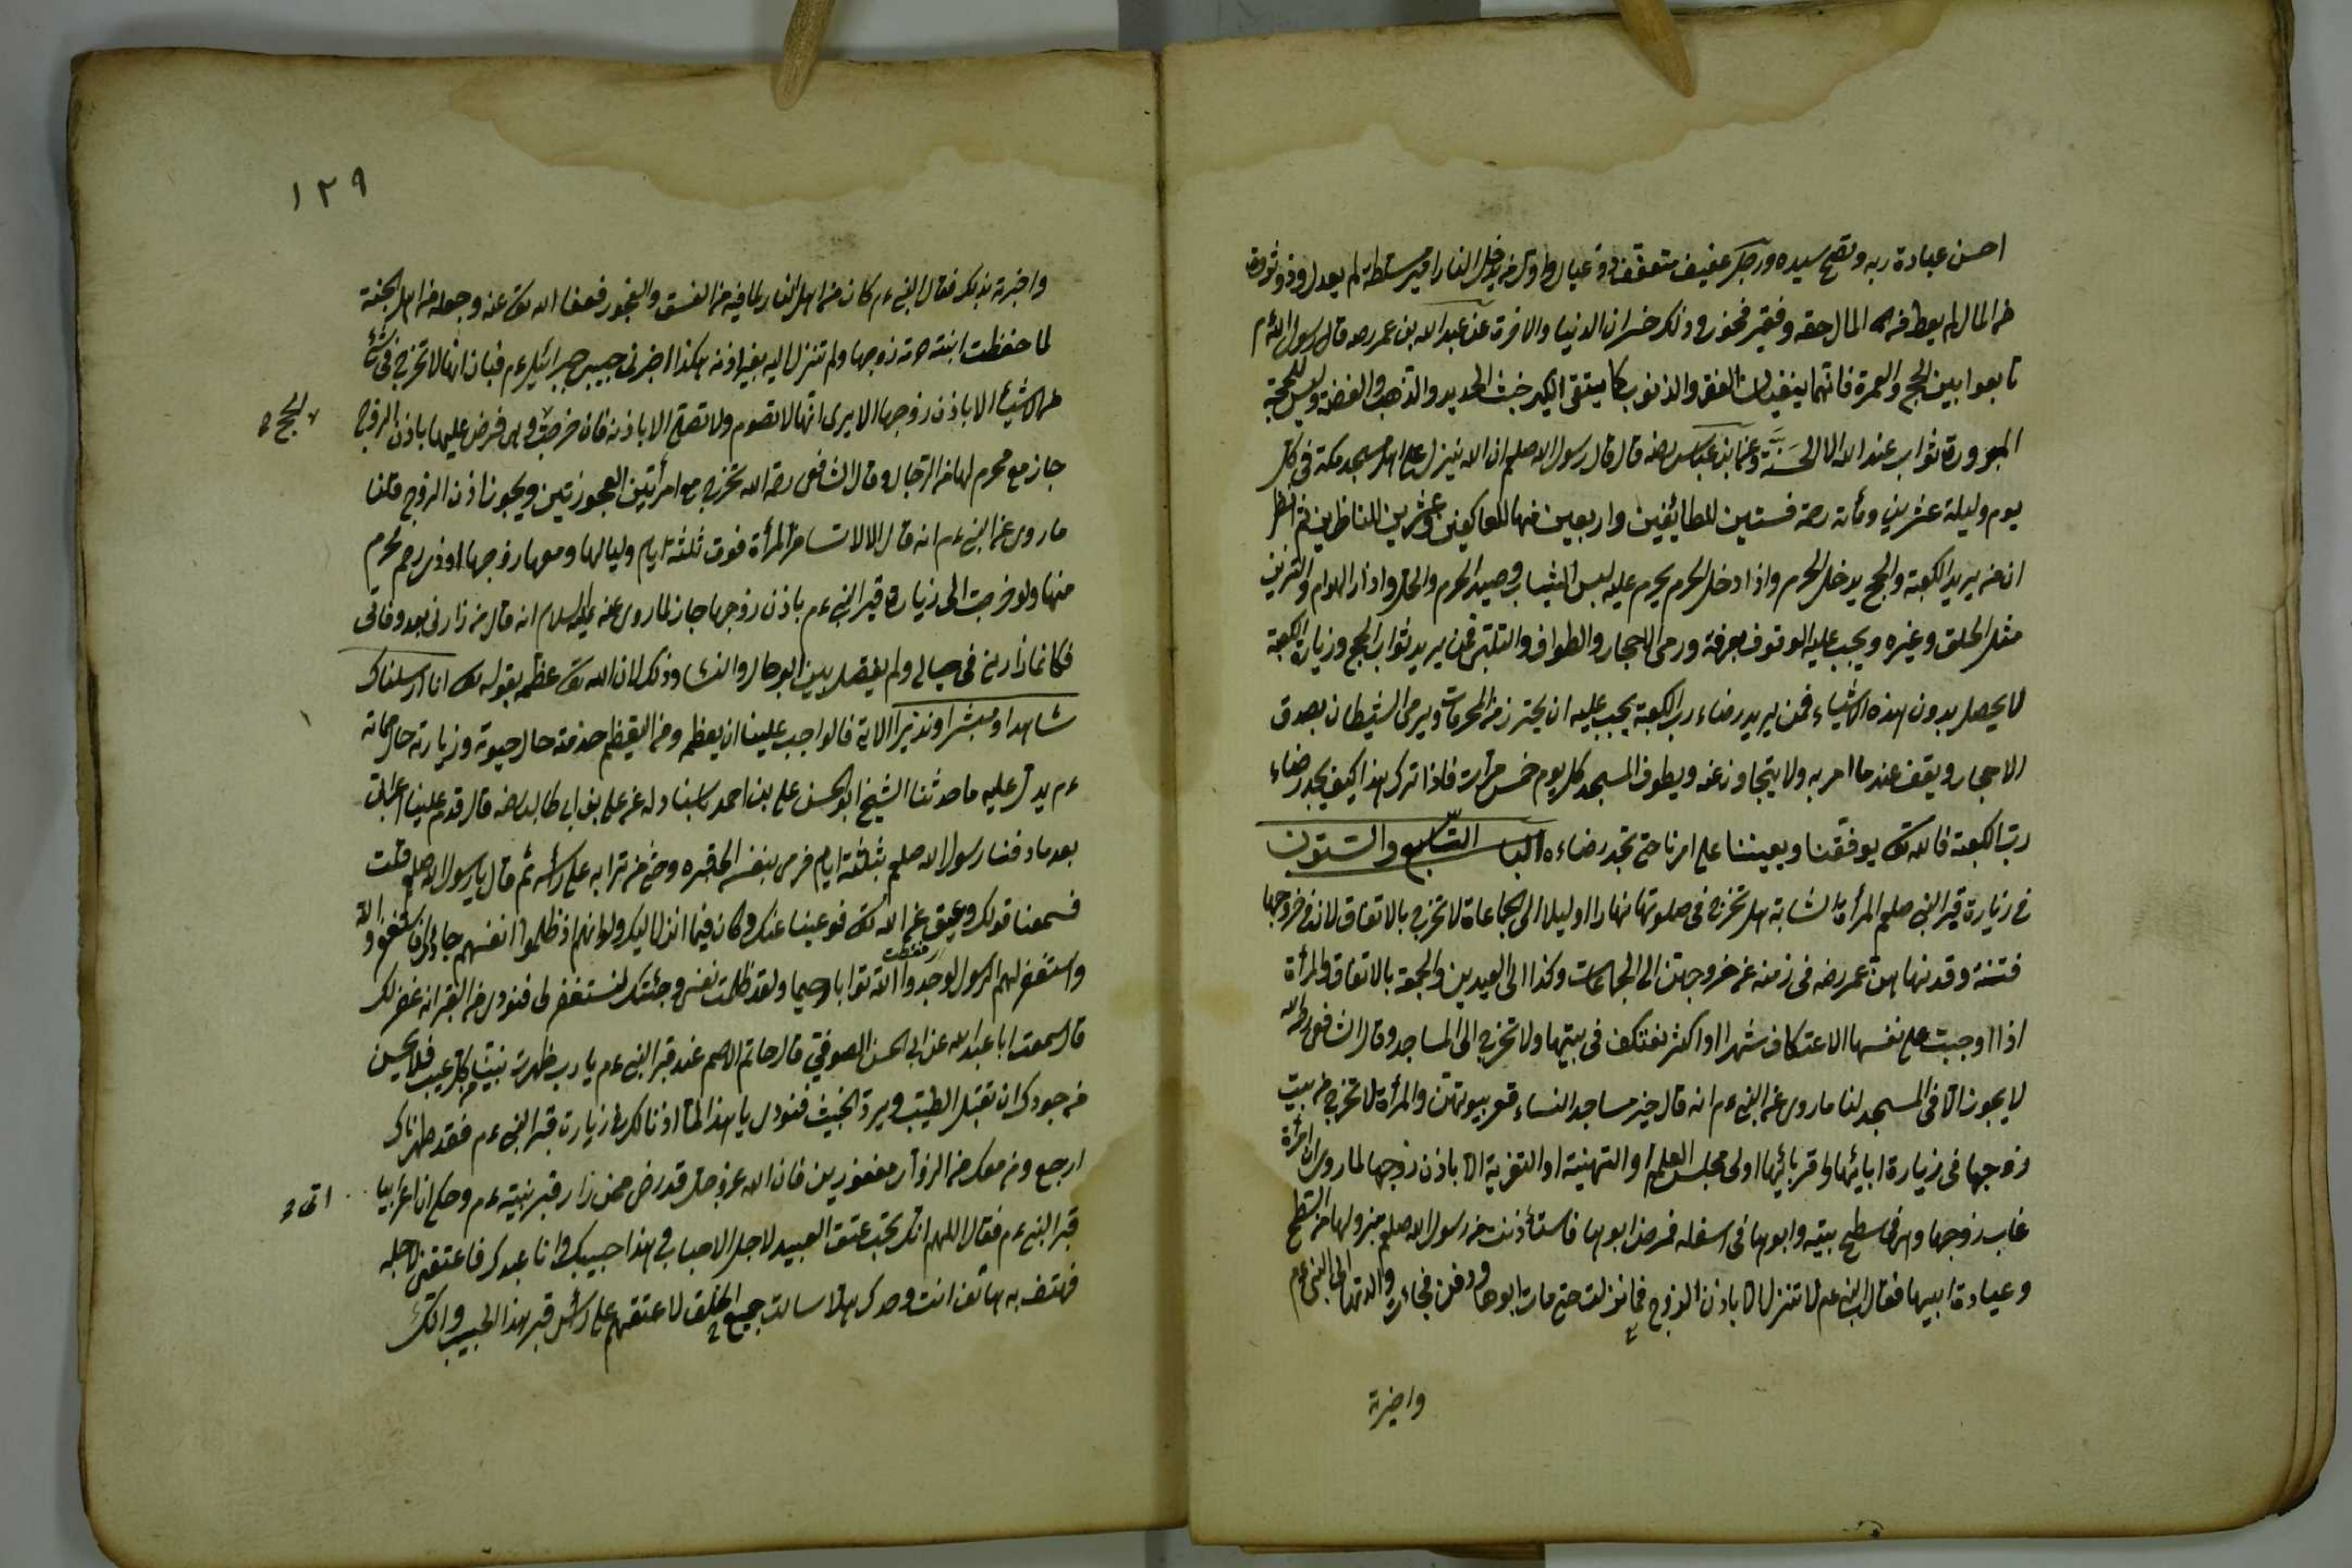 احسن عبادة ربه ونصح سيده ورجل عفيف متعفف ذو عيال واول من يدخل النار امير مسلط لم يعدل وذو ثروة
من المال لم يعط من المال حقه وفقير فخور وذلك خسران الدنيا والاخرة عن عبد الله بن عمر رضه قال رسول الله عم
تابعوا بين الحج والعمرة فانهما ينفيان الفقر والذنوب كما ينفى الكير خبث الحديد والذهب والفضة وليس للحجة
المبرورة ثواب عند الله الا الجنة وعن ابن عباس رضه قال قال رسول الله صلعم ان الله ينزل على اهل مسجد مكة فى كل
يوم وليلة عشرين ومأئة رحمة فستين للطائفين واربعين منها للعاكفين وعشرين للناظرين ثم اعلم
ان من يريد الكعبة والحج يدخل الحرم واذا دخل الحرم يحرم عليه لبس الثياب وصيد الحرم والحل واذار الهوام والتزين
مثل الحلق وغيره ويجب عليه الوقوف بعرفة ورمى الاحجار والطواف والتلبى فمن يريد ثواب الحج وزيارة الكعبة
لا يحصل بدون هذه الاشياء فمن يريد رضاء رب الكعبة يجب عليه ان يحترز من المحرمات ويرمى الشيطان بصدق
الاحجار ويقف عند ما امر به ولا يتجاوز عنه ويطوف المسجد كل يوم خمس مرات فاذا ترك هذا كيف يجد رضاء
رب الكعبة فالله تعه يوفقنا ويعيننا على امرنا حتى نجد رضاءه الباب السابع والستون
فى زيارة قبر النبى صلعم المرأة الشابة هل تخرج فى صلوتها نهارا اوليلا الى الجاعاة لا تخرج بالاتفاق لان فى خروجها
فتنة وقد نهاهن عمر رضه فى زمنه عن خروجهن الى الجماعات وكذا الى العيدين والجمعة بالاتفاق والمرأة
اذا اوجبت على نفسها الاعتكاف شهرا او اكثر تعتكف فى بيتها ولا تخرج الى المساجد وقال الشافعى رحمه الله
لا يجوز الا فى المسجد لنا ما روى عن النبى عم انه قال خير مساجد النساء قعر بيوتهن والمرأة لا تخرج من بيت
زوجها فى زيارة ابائها واقربائها اولى مجلس العلم او التهنية او التعزية الا باذن زوجها لما روى ان امرأة
غاب زوجها وهى فى سطح بيته وابوها فى اسفله فمرض ابوها فاستأذنت من رسول الله صلعم بنزولها من السطح
وعيادة ابيها فقال النبى عم لا تنزل الا باذن الزوج فما نزلت حتى مات ابوها ودفن فجاءت والدتها الى النبى عم
واخبرته
١٢٩
واخبرته بذلك فقال النبى عم كان من اهل النار لما فيه من الفسق والفجور فعفا الله تعه عنه وجعله من اهل الجنة
لما حفظت ابنته زوجها ولم تنزل اليه بغير اذنه هكذا اخبرنى حبيبى جبرائيل عم فبان انها لا تخرج فى شئ
من الاشياء الا باذن زوجها الا يرى انها لا تصوم ولا تصلى الا باذنه فان خرجت وهى فرض عليها باذن الزوج
الحج
جاز مع محرم لها من الرجال وقال الشافعى رحمه الله تخرج مع امرأتين العجوزتين ويجوز اذن الزوج قلنا
ما روى عن النبى عم انه قال الا لا تسافر المرأة فوق ثلثة ايام ولياليها ومعها زوجها او ذى رحم محرم
منها ولو خرجت الى زيارة قبر النبى عم باذن زوجها جاز لما روى عنه عليه السلام انه قال من زارنى بعد وفاتى
فكانما زارنى فى حياتى ولم يفصل بين الرجال والنساء وذلك لان الله تعه عظمه بقوله تعه انا ارسلناك
شاهدا ومبشرا ونذيرا الاية فالواجب علينا ان يعظم ومن التعظيم خدمته حال حيوته وزيارته حال مماته
عم يدل عليه ما حدثنا الشيخ ابو الحسن على بن احمد باسناد له عن على بن ابى طالب رضه قال قدم علينا اعرابى
بعد ما دفنا رسول الله صلعم بثلثة ايام فرمى بنفسه الى قبره وحثى من ترابه على رأسه ثم قال يا رسول الله صلعم قلت
فسمعنا قولك وعيت عن الله تعه فوعينا عنك وكان فيما انزل اليك ولو انهم اذ ظلموا انفسهم جاؤك فاستغفروا الله
واستغفر لهم الرسول لوجدوا الله توابا رحيما ولقد ظلمت نفسى وجئتك لتستغفر لى فنودى من القبر انه غفر لك
قال سمعت ابا عبد الله عن ابى الحسن الصوفى قال حاتم الاصم عند قبر النبى عم يا رب طهرت نبيك من كل عيب فلا يحسن
من جودك ان تقبل الطيب ويرد الخبيث فنودى يا هذا لما اذنا لك فى زيارت قبر النبى عم فقد طهرناك
ارجع ومن معك من الزوار مغفورين فان الله عز وجل قد رضى عمن زار قبر نبيه عم وحكى ان اعرابيا
اتى
قبر النبى عم فقال اللهم انك تحب عتق العبيد لاجل الاحباب وهذا حبيبك وانا عبدك فاعتقنى لاجله
فهتف به هاتف انت وحدك هلا سالت جميع الخلق لاعتقهم على رأس قبر هذا الحبيب وانك